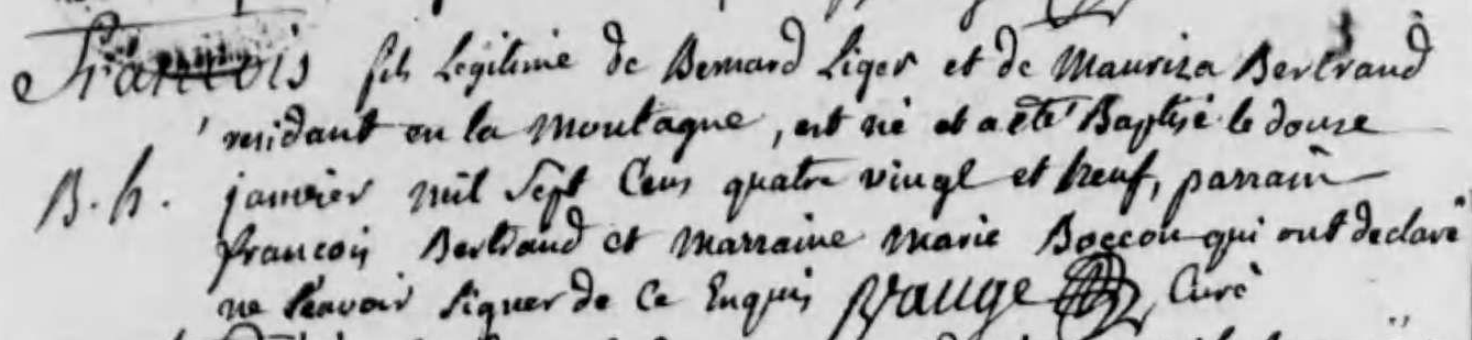 François fils Legitime de Bernard Liger et de Mauriza Bertrand
residant en la Montagne, est né et a eté Baptisé le douze
B. h. janvier mil Sept Cens quatre vingt et neuf, parrain
francois Bertrand et Marraine Marie Boccon qui ont declaré
ne Sçavoir Signer de Ce Enquis Vauge Curé